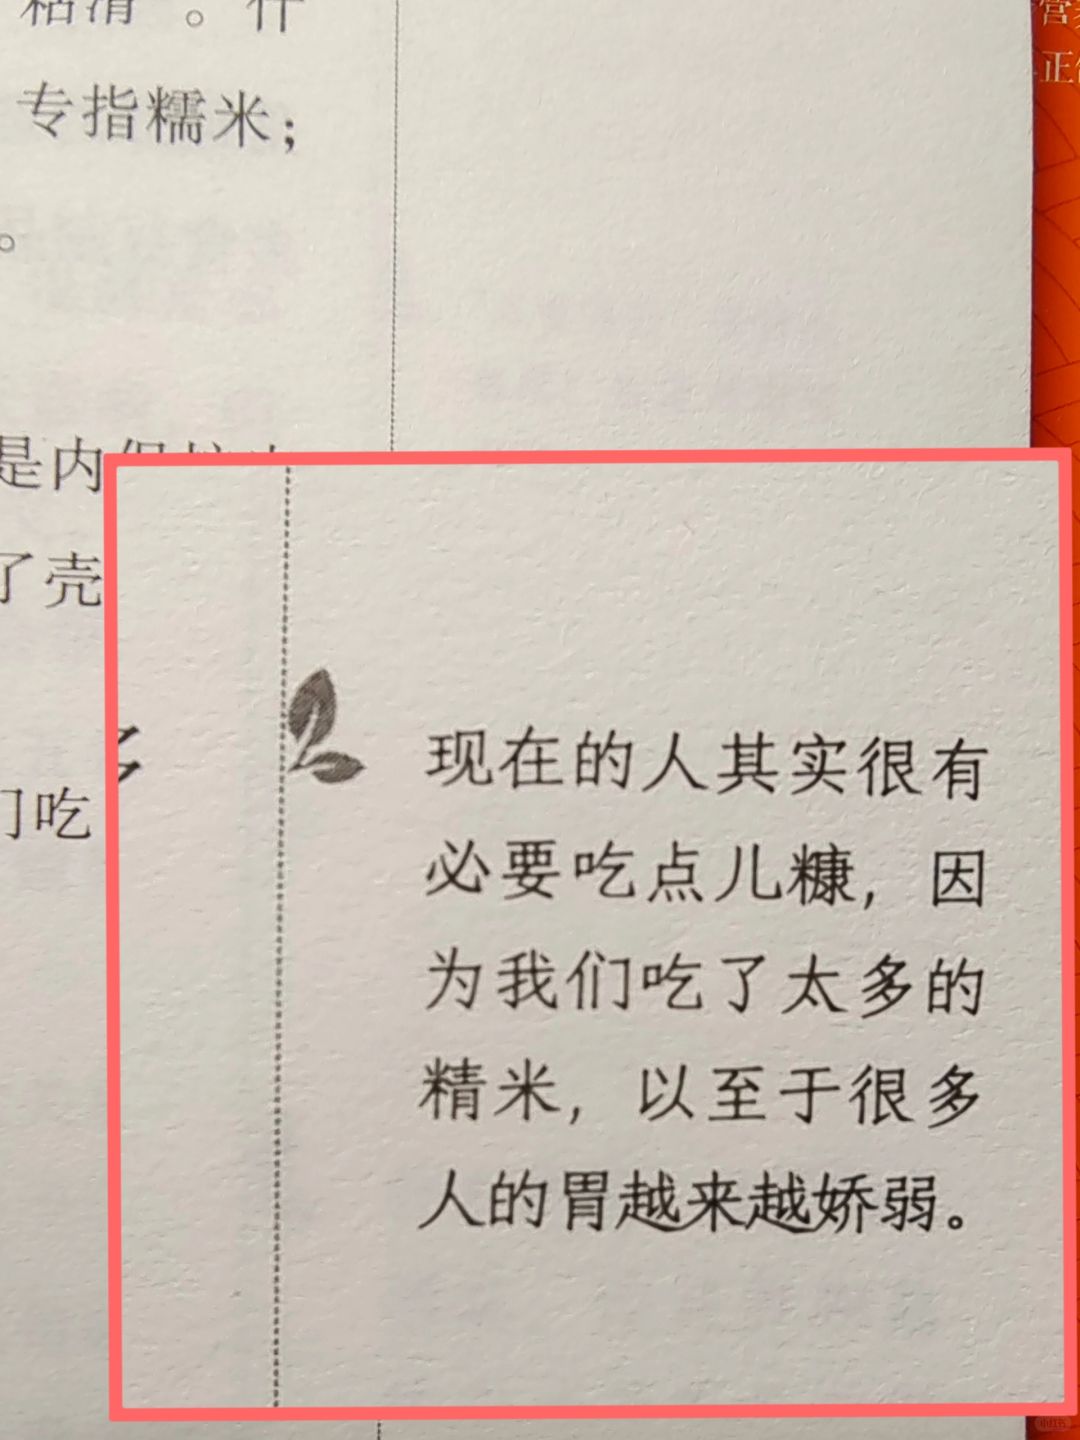 专指糯米；
。
是内
了壳
们吃
现在的人其实很有
必要吃点儿糠，因
为我们吃了太多的
精米，以至于很多
人的胃越来越娇弱。